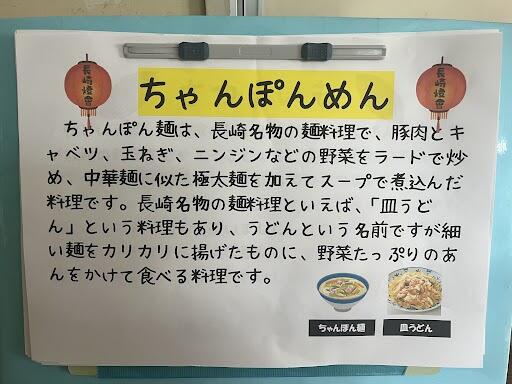 長崎燈會
長崎燈會
ちゃんぽんめん
ちゃんぽん麺は、長崎名物の麺料理で、豚肉とキ
ャベツ、玉ねぎ、ニンジンなどの野菜をラードで炒
め、中華麺に似た極太麺を加えてスープで煮込んだ
料理です。長崎名物の麺料理といえば、「皿うど
ん」という料理もあり、うどんという名前ですが細
い麺をカリカリに揚げたものに、野菜たっぷりのあ
んをかけて食べる料理です。
ちゃんぽん麺
皿うどん